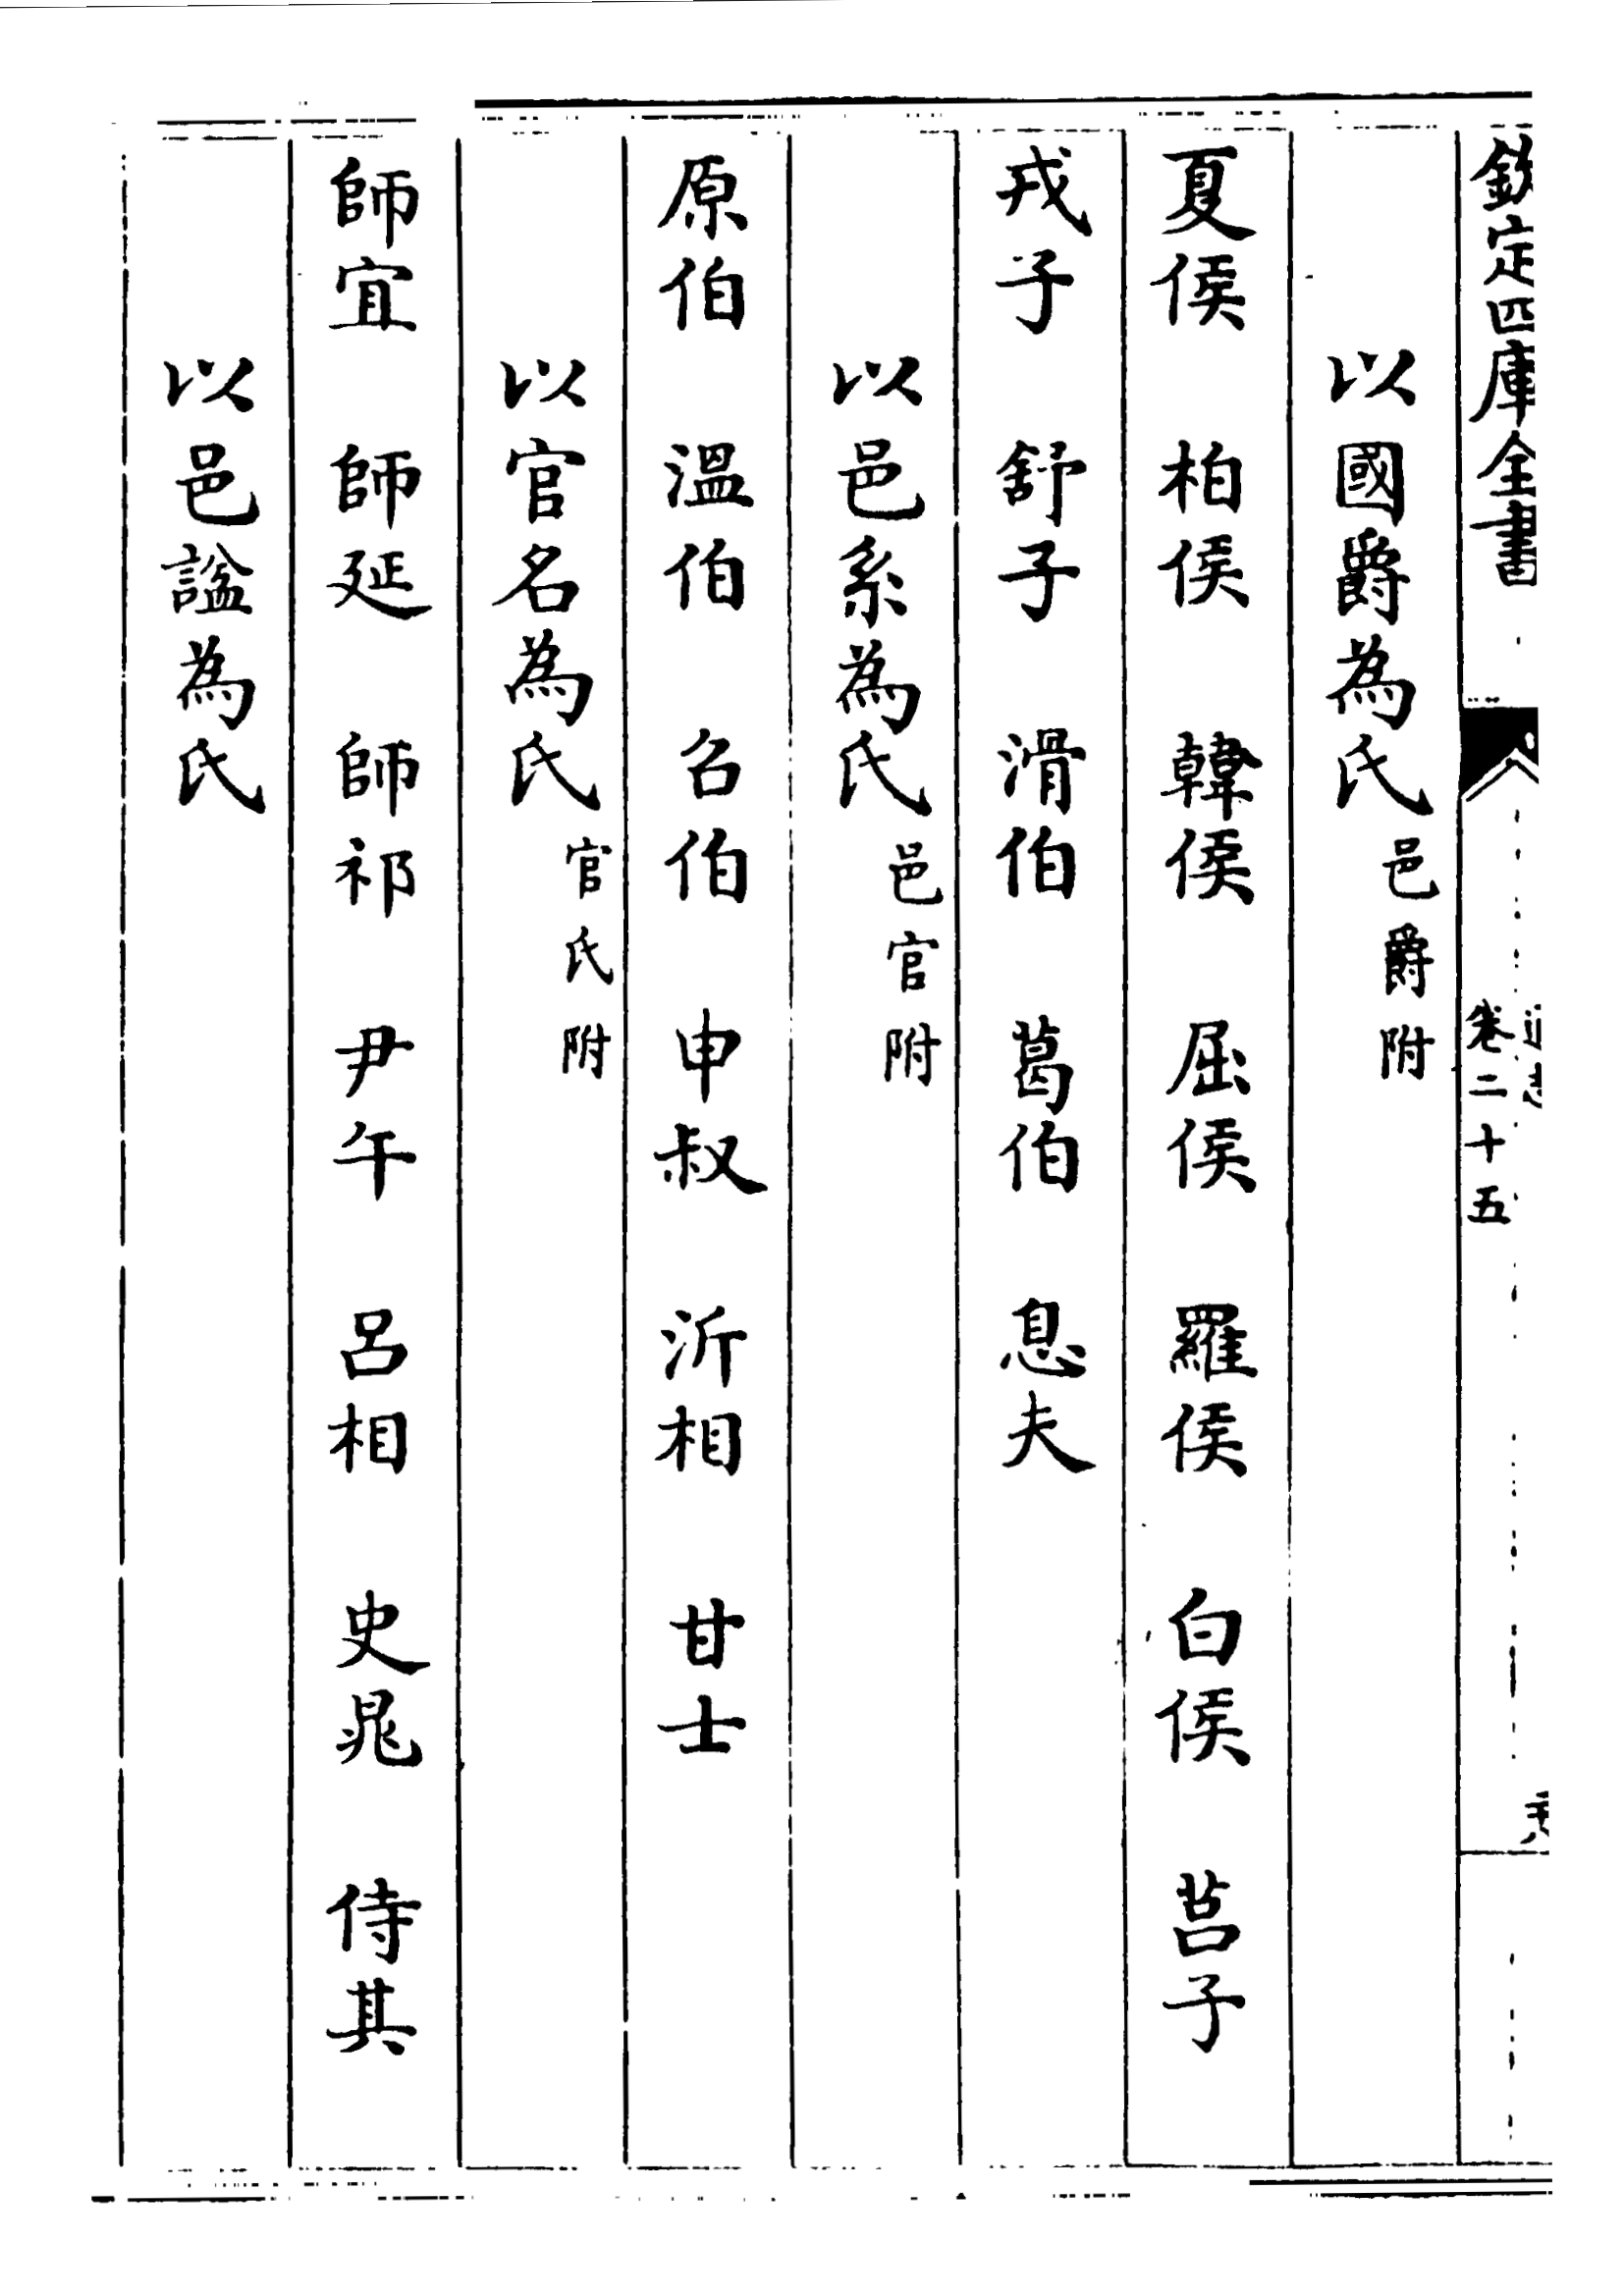 欽定四庫全書
通志
卷二十五
以國爵為氏 邑爵附
夏侯 柏侯 韓侯 屈侯 羅侯 白侯 莒子
戎子 舒子 滑伯 葛伯 息夫
以邑系為氏 邑官附
原伯 溫伯 召伯 申叔 沂相 甘士
以官名為氏 官氏附
師宜 師延 師祁 尹午 呂相 史晁 侍其
以邑諡為氏